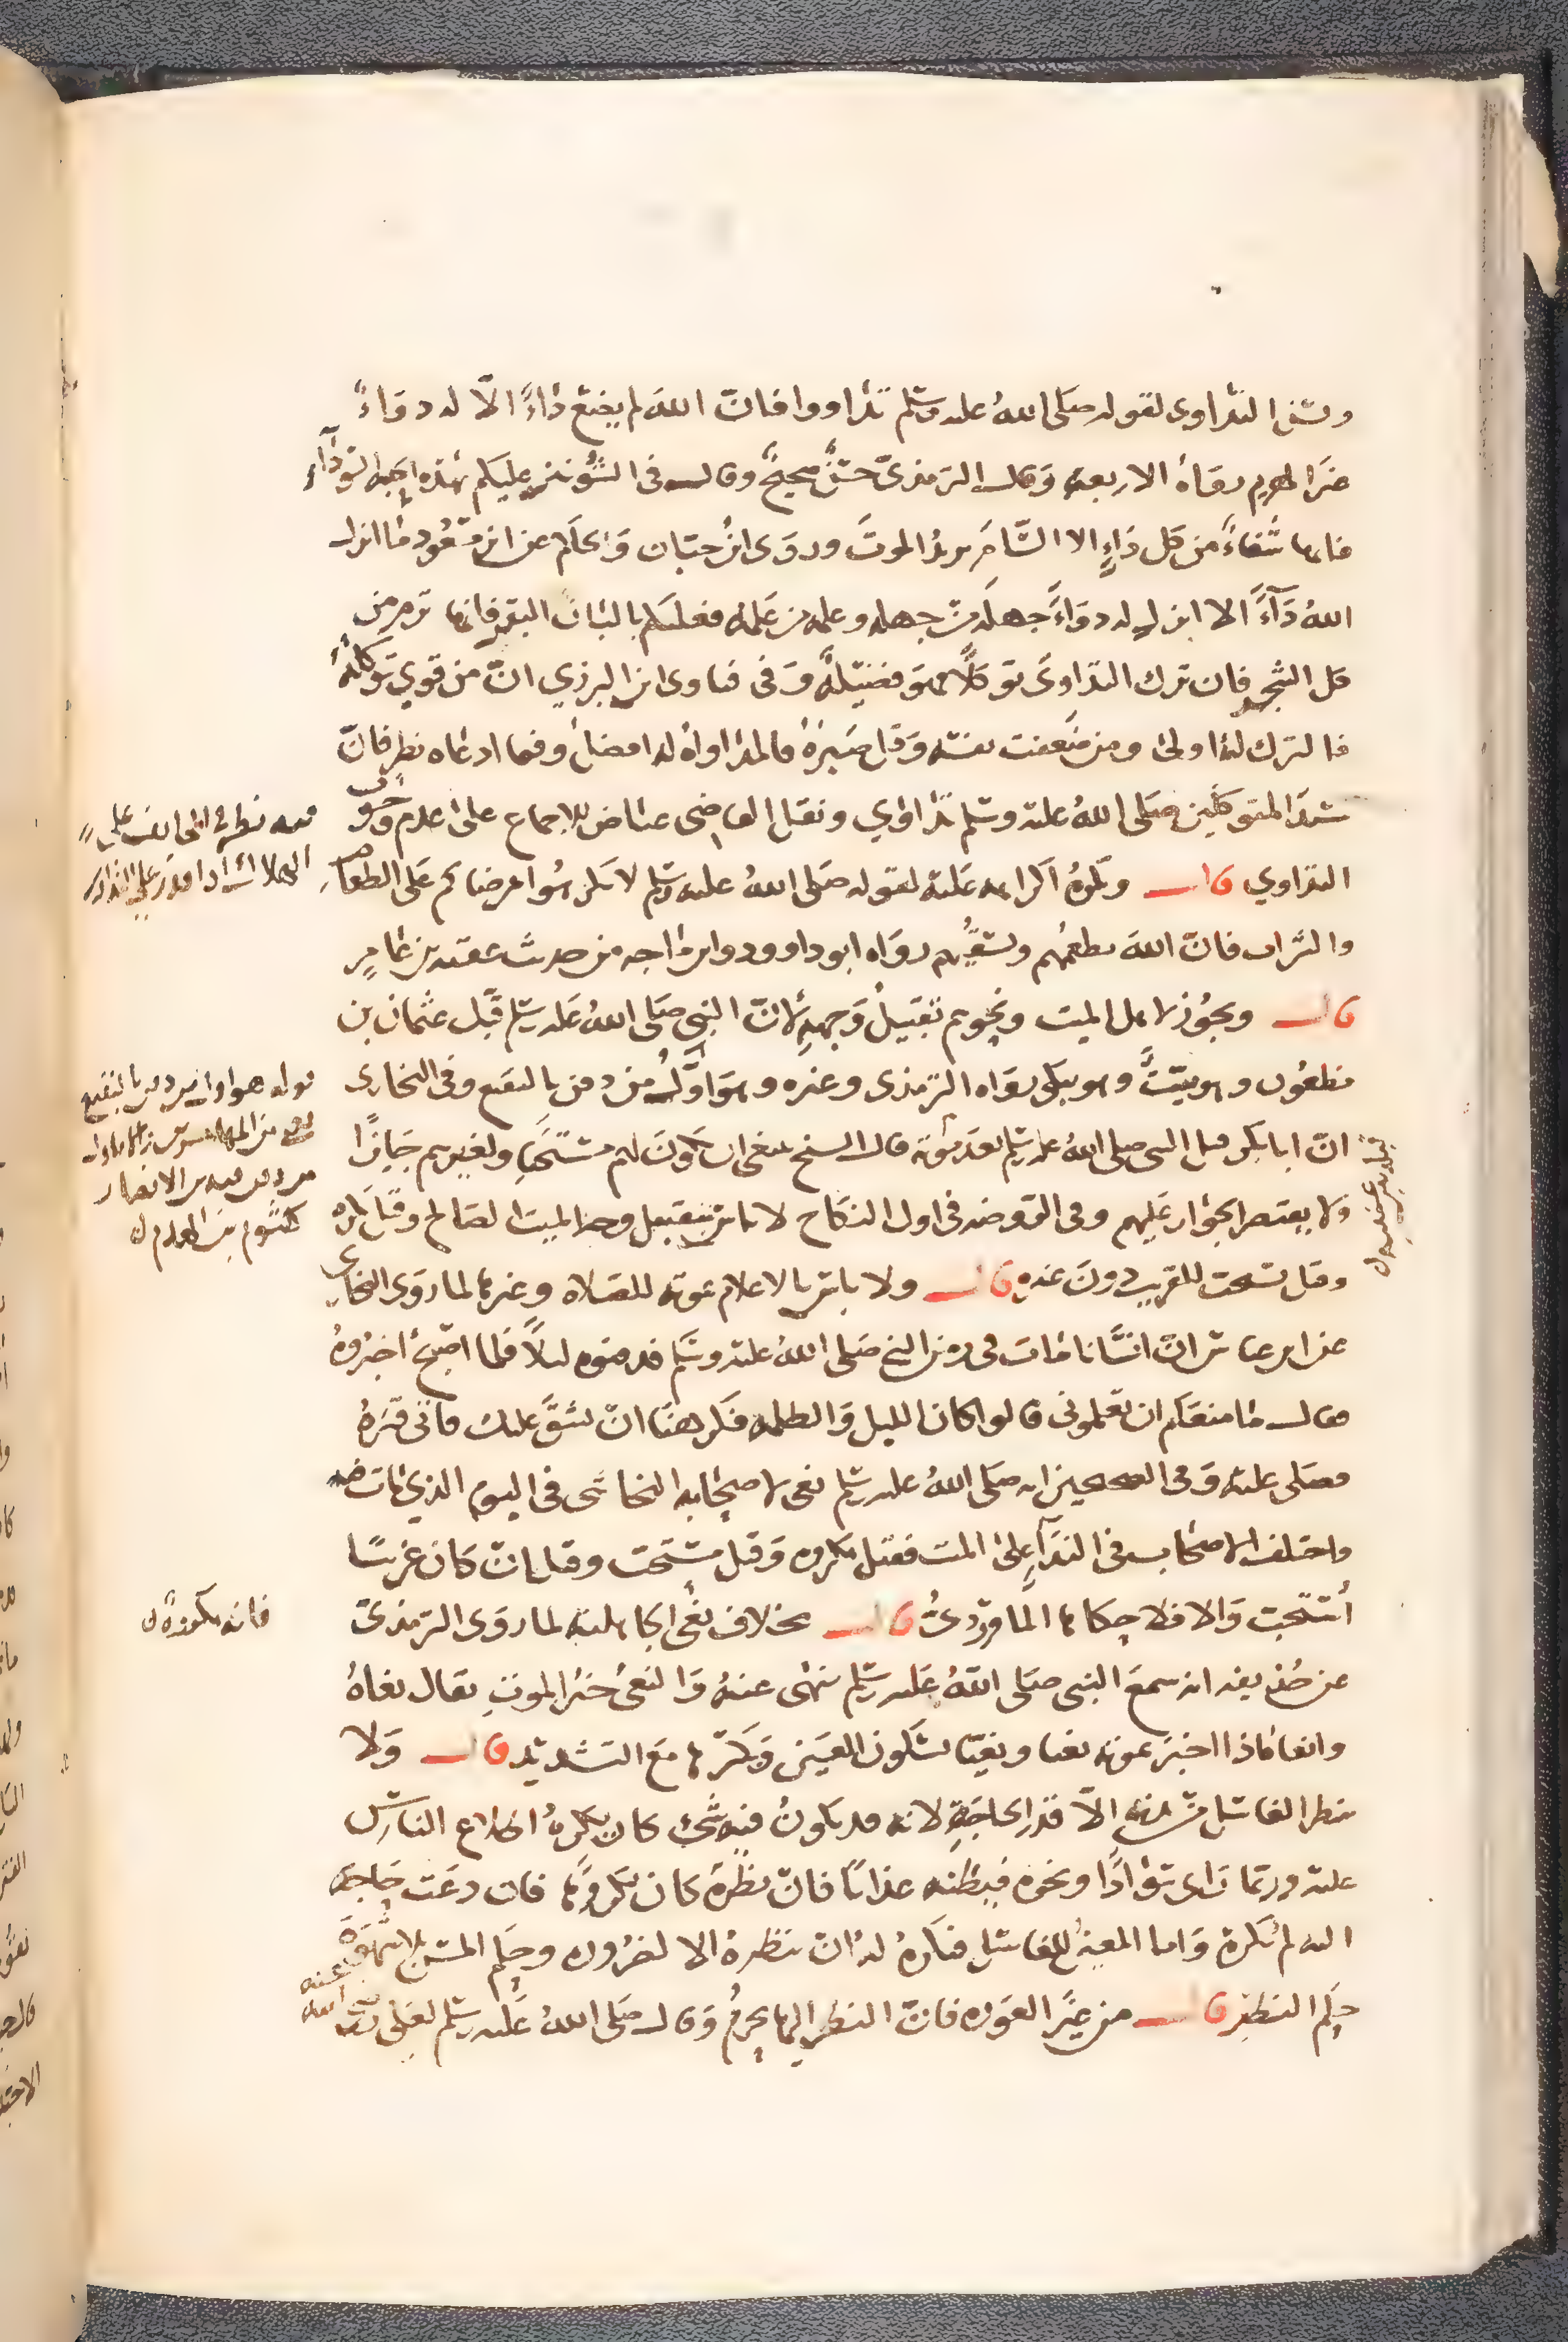 ويسن التداوي لقوله صلى الله عليه وسلم تداووا فان الله لم يضع داء الا له دواء
غير الهرم رواه الاربعة وقال الترمذي حسن صحيح وقال في الشونيز عليكم بهذه الحبة السوداء
فانها شفاء من كل داء الا السام يريد الموت وروى ابن حبان والحاكم عن ابن مسعود ما انزل
الله داء الا انزل له دواء جهله من جهله وعلمه من علمه فعليكم بالبان البقر فانها ترم من
كل الشجر فان ترك التداوي توكلا فهو فضيلة وفي فتاوى ابن البزري ان من قوي توكله
فالترك له اولى ومن ضعفت نفسه وقل صبره فالمداواة له افضل وفيما ادعاه نظر فان
سيد المتوكلين صلى الله عليه وسلم تداوي ونقل القاضي عياض للاجماع على عدم وجوب
التداوي قال ويكره اكراهه عليه لقوله صلى الله عليه وسلم لا تكرهوا مرضاكم على الطعام
والشراب فان الله يطعمهم ويسقيهم رواه ابو داوود وابن ماجه من حديث عقبة بن عامر
قال ويجوز لاهل الميت ونحوهم تقبيل وجهه لان النبي صلى الله عليه وسلم قبل عثمان بن
مظعون وهو ميت وهو يبكي رواه الترمذي وغيره وهو اول من دفن بالبقيع وفي البخاري
ان ابا بكر قبل النبي صلى الله عليه وسلم بعد موته قال الشيخ ينبغي ان يكون لهم مستحبا ولغيرهم جايزا
ولا يقتصر الجواز عليهم وفي الروضة في اول النكاح لا باس بتقبيل وجه الميت الصالح وقيل يكره
وقيل تستحب للقريب دون غيره قال ولا باس بالاعلام بموته للصلاة وغيرها لما روى البخاري
عن ابن عباس ان انسانا مات في زمن النبي صلى الله عليه وسلم فدفنوه ليلا فلما اصبح اخبروه
فقال ما منعكم ان تعلموني قالوا كان الليل والظلمة فكرهنا ان نشق عليك فاتى قبره
فصلى عليه وفي الصحيحين انه صلى الله عليه وسلم نعى لاصحابه النجاشي في اليوم الذي مات فيه
واختلف الاصحاب في النداء على الميت فقيل مكروه وقيل مستحب وقيل ان كان غريبا
استحب والا فلا حكاها الماوردي قال بخلاف نعي الجاهلية لما روى الترمذي
عن حذيفة انه سمع النبي صلى الله عليه وسلم ينهى عنه والنعي خبر الموت يقال نعاه
وانعاه اذا اخبر بموته نعيا ونعيا بسكون العين وكسرها مع التشديد قال ولا
ينظر الغاسل من بدنه الا قدر الحاجة لانه قد يكون فيه شيء كان يكره اطلاع الناس
عليه وربما راى سوادا ونحوه فيظنه عذابا فان نظر كان مكروها فان دعت حاجة
اليه لم يكره واما المعين للغاسل فيكره له ان ينظر الا لضرورة وحكم المس بلا شهوة
حكم النظر قال من غير العورة فان النظر اليها يحرم وقال صلى الله عليه وسلم لعلي رضي الله عنه
قوله هو اول من دفن بالبقيع
يعني من المهاجرين
من دفن فيه من الانصار
كلثوم بن الهدم
فانه مكروه